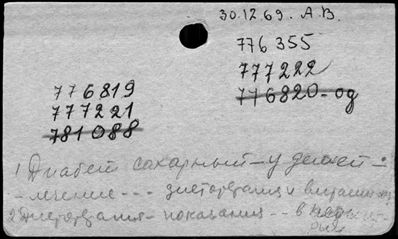 30.12.69. А.В.
776 355
777222
776820-од
776819
777221
781088
1 Диабет сахарный - у детей -
- лечение --- диетотерапия и
2 Диетотерапия - показания -- в